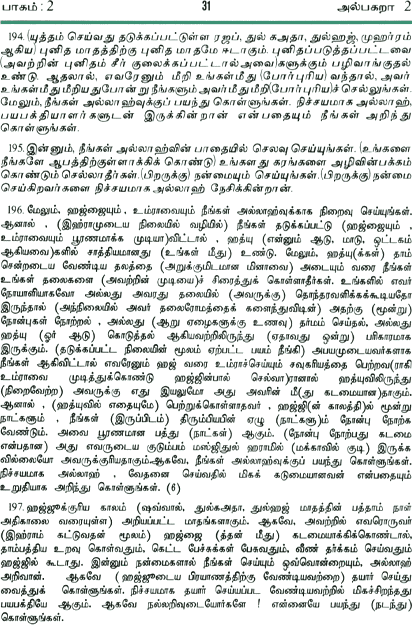 பாகம் : 2 31 அல்பகரா 2
194. (யுத்தம் செய்வது தடுக்கப்பட்டுள்ள ரஜப், துல் கஅதா, துல்ஹஜ், முஹர்ரம்
ஆகிய) புனித மாதத்திற்கு புனித மாதமே ஈடாகும். புனிதப்படுத்தப்பட்டவை
(அவற்றின் புனிதம் சீர் குலைக்கப்பட்டால்அவை)களுக்கும் பழிவாங்குதல்
உண்டு. ஆதலால், எவரேனும் மீறி உங்கள்மீது (போர்புரிய) வந்தால், அவர்
உங்கள்மீது மீறியதுபோன்று நீங்களும்அவர்மீது மீறி(போர்புரிய)ச் செல்லுங்கள்.
மேலும், நீங்கள் அல்லாஹ்வுக்குப் பயந்து கொள்ளுங்கள். நிச்சயமாக அல்லாஹ்,
பயபக்தியாளர்களுடன் இருக்கின்றான் என்பதையும் நீங்கள் அறிந்து
கொள்ளுங்கள்.
195. இன்னும், நீங்கள் அல்லாஹ்வின் பாதையில் செலவு செய்யுங்கள். (உங்களை
நீங்களே ஆபத்திற்குள்ளாக்கிக் கொண்டு) உங்களது கரங்களை அழிவின்பக்கம்
கொண்டும் செல்லாதீர்கள். (பிறருக்கு) நன்மையும் செய்யுங்கள். (பிறருக்கு) நன்மை
செய்கிறவர்களை நிச்சயமாக அல்லாஹ் நேசிக்கின்றான்.
196. மேலும், ஹஜ்ஜையும் , உம்ராவையும் நீங்கள் அல்லாஹ்வுக்காக நிறைவு செய்யுங்கள்.
ஆனால் , (இஹ்ராமுடைய நிலையில் வழியில்) நீங்கள் தடுக்கப்பட்டு (ஹஜ்ஜையும் ,
உம்ராவையும் பூரணமாக்க முடியா)விட்டால் , ஹத்யு (என்னும் ஆடு, மாடு, ஒட்டகம்
ஆகியவை)களில் சாத்தியமானது (உங்கள் மீது) உண்டு. மேலும், ஹத்யு(க்கள்) தாம்
சென்றடைய வேண்டிய தலத்தை (அறுக்குமிடமான மினாவை) அடையும் வரை நீங்கள்
உங்கள் தலைகளை (அவற்றின் முடியை)ச் சிரைத்துக் கொள்ளாதீர்கள். உங்களில் எவர்
நோயாளியாகவோ அல்லது அவரது தலையில் (அவருக்கு) தொந்தரவளிக்கக்கூடியதோ
இருந்தால் (அந்நிலையில் அவர் தலைரோமத்தைக் களைந்துவிடின்) அதற்கு (மூன்று)
நோன்புகள் நோற்றல் , அல்லது (ஆறு ஏழைகளுக்கு உணவு) தர்மம் செய்தல், அல்லது
ஹத்யு (ஓர் ஆடு) கொடுத்தல் ஆகியவற்றிலிருந்து (ஏதாவது ஒன்று) பரிகாரமாக
இருக்கும். (தடுக்கப்பட்ட நிலையின் மூலம் ஏற்பட்ட பயம் நீங்கி) அபயமுடையவர்களாக
நீங்கள் ஆகிவிட்டால் எவரேனும் ஹஜ் வரை உம்ராச்செய்யும் சவுகரியத்தை பெற்றவ(ராகி
உம்ராவை முடித்துக்கொண்டு ஹஜ்ஜின்பால் செல்வா)ரானால் ஹத்யுவிலிருந்து
(நிறைவேற்ற) அவருக்கு எது இயலுமோ அது அவரின் மீ(து கடமையான)தாகும்.
ஆனால் , (ஹத்யுவில் எதையுமே) பெற்றுக்கொள்ளாதவர் , ஹஜ்ஜி(ன் காலத்தி)ல் மூன்று
நாட்களும் , நீங்கள் (இருப்பிடம்) திரும்பியபின் ஏழு (நாட்களு)ம் நோன்பு நோற்க
வேண்டும். அவை பூரணமான பத்து (நாட்கள்) ஆகும். (நோன்பு நோற்பது கடமை
என்பதான) அது எவருடைய குடும்பம் மஸ்ஜிதுல் ஹராமில் (மக்காவில் குடி) இருக்க
வில்லையோ அவருக்குரியதாகும்.ஆகவே, நீங்கள் அல்லாஹ்வுக்குப் பயந்து கொள்ளுங்கள்.
நிச்சயமாக அல்லாஹ் , வேதனை செய்வதில் மிகக் கடுமையானவன் என்பதையும்
உறுதியாக அறிந்து கொள்ளுங்கள். (6)
197. ஹஜ்ஜுக்குரிய காலம் (ஷவ்வால், துல்கஅதா, துல்ஹஜ் மாதத்தின் பத்தாம் நாள்
அதிகாலை வரையுள்ள) அறியப்பட்ட மாதங்களாகும். ஆகவே, அவற்றில் எவரொருவர்
(இஹ்ராம் கட்டுவதன் மூலம்) ஹஜ்ஜை (த்தன் மீது) கடமையாக்கிக்கொண்டால்,
தாம்பத்திய உறவு கொள்வதும், கெட்ட பேச்சுக்கள் பேசுவதும், வீண் தர்க்கம் செய்வதும்
ஹஜ்ஜில் கூடாது. இன்னும் நன்மைகளால் நீங்கள் செய்யும் ஒவ்வொன்றையும், அல்லாஹ்
அறிவான். ஆகவே (ஹஜ்ஜுடைய பிரயாணத்திற்கு வேண்டியவற்றை) தயார் செய்து
வைத்துக் கொள்ளுங்கள். நிச்சயமாக தயார் செய்யப்பட வேண்டியவற்றில் மிகச்சிறந்தது
பயபக்தியே ஆகும். ஆகவே நல்லறிவுடையோர்களே ! என்னையே பயந்து (நடந்து)
கொள்ளுங்கள்.